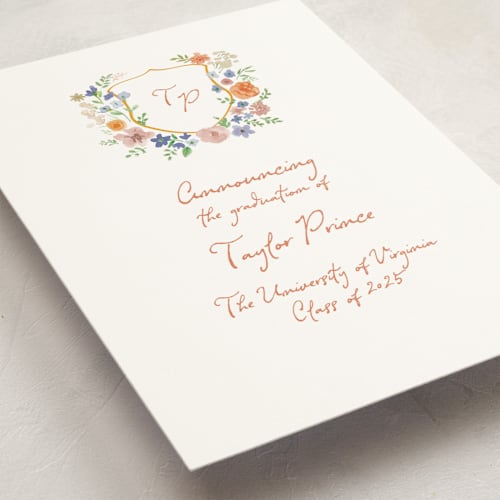 TP
Announcing
the graduation of
Taylor Prince
The University of Virginia
Class of 2025